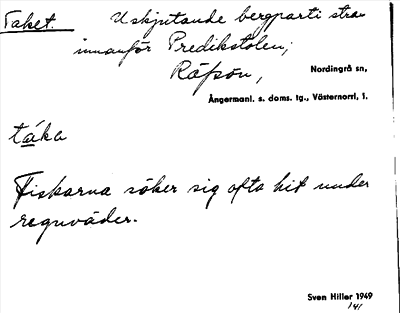 Taket. Utskjutande bergparti strax
innanför Predikstolen,
Råfsön, Nordingrå sn,
Ångermanl. s. doms. tg., Västernorrl, l.
táka
Fiskarna söker sig ofta hit under
regnväder.
Sven Hiller 1949
141